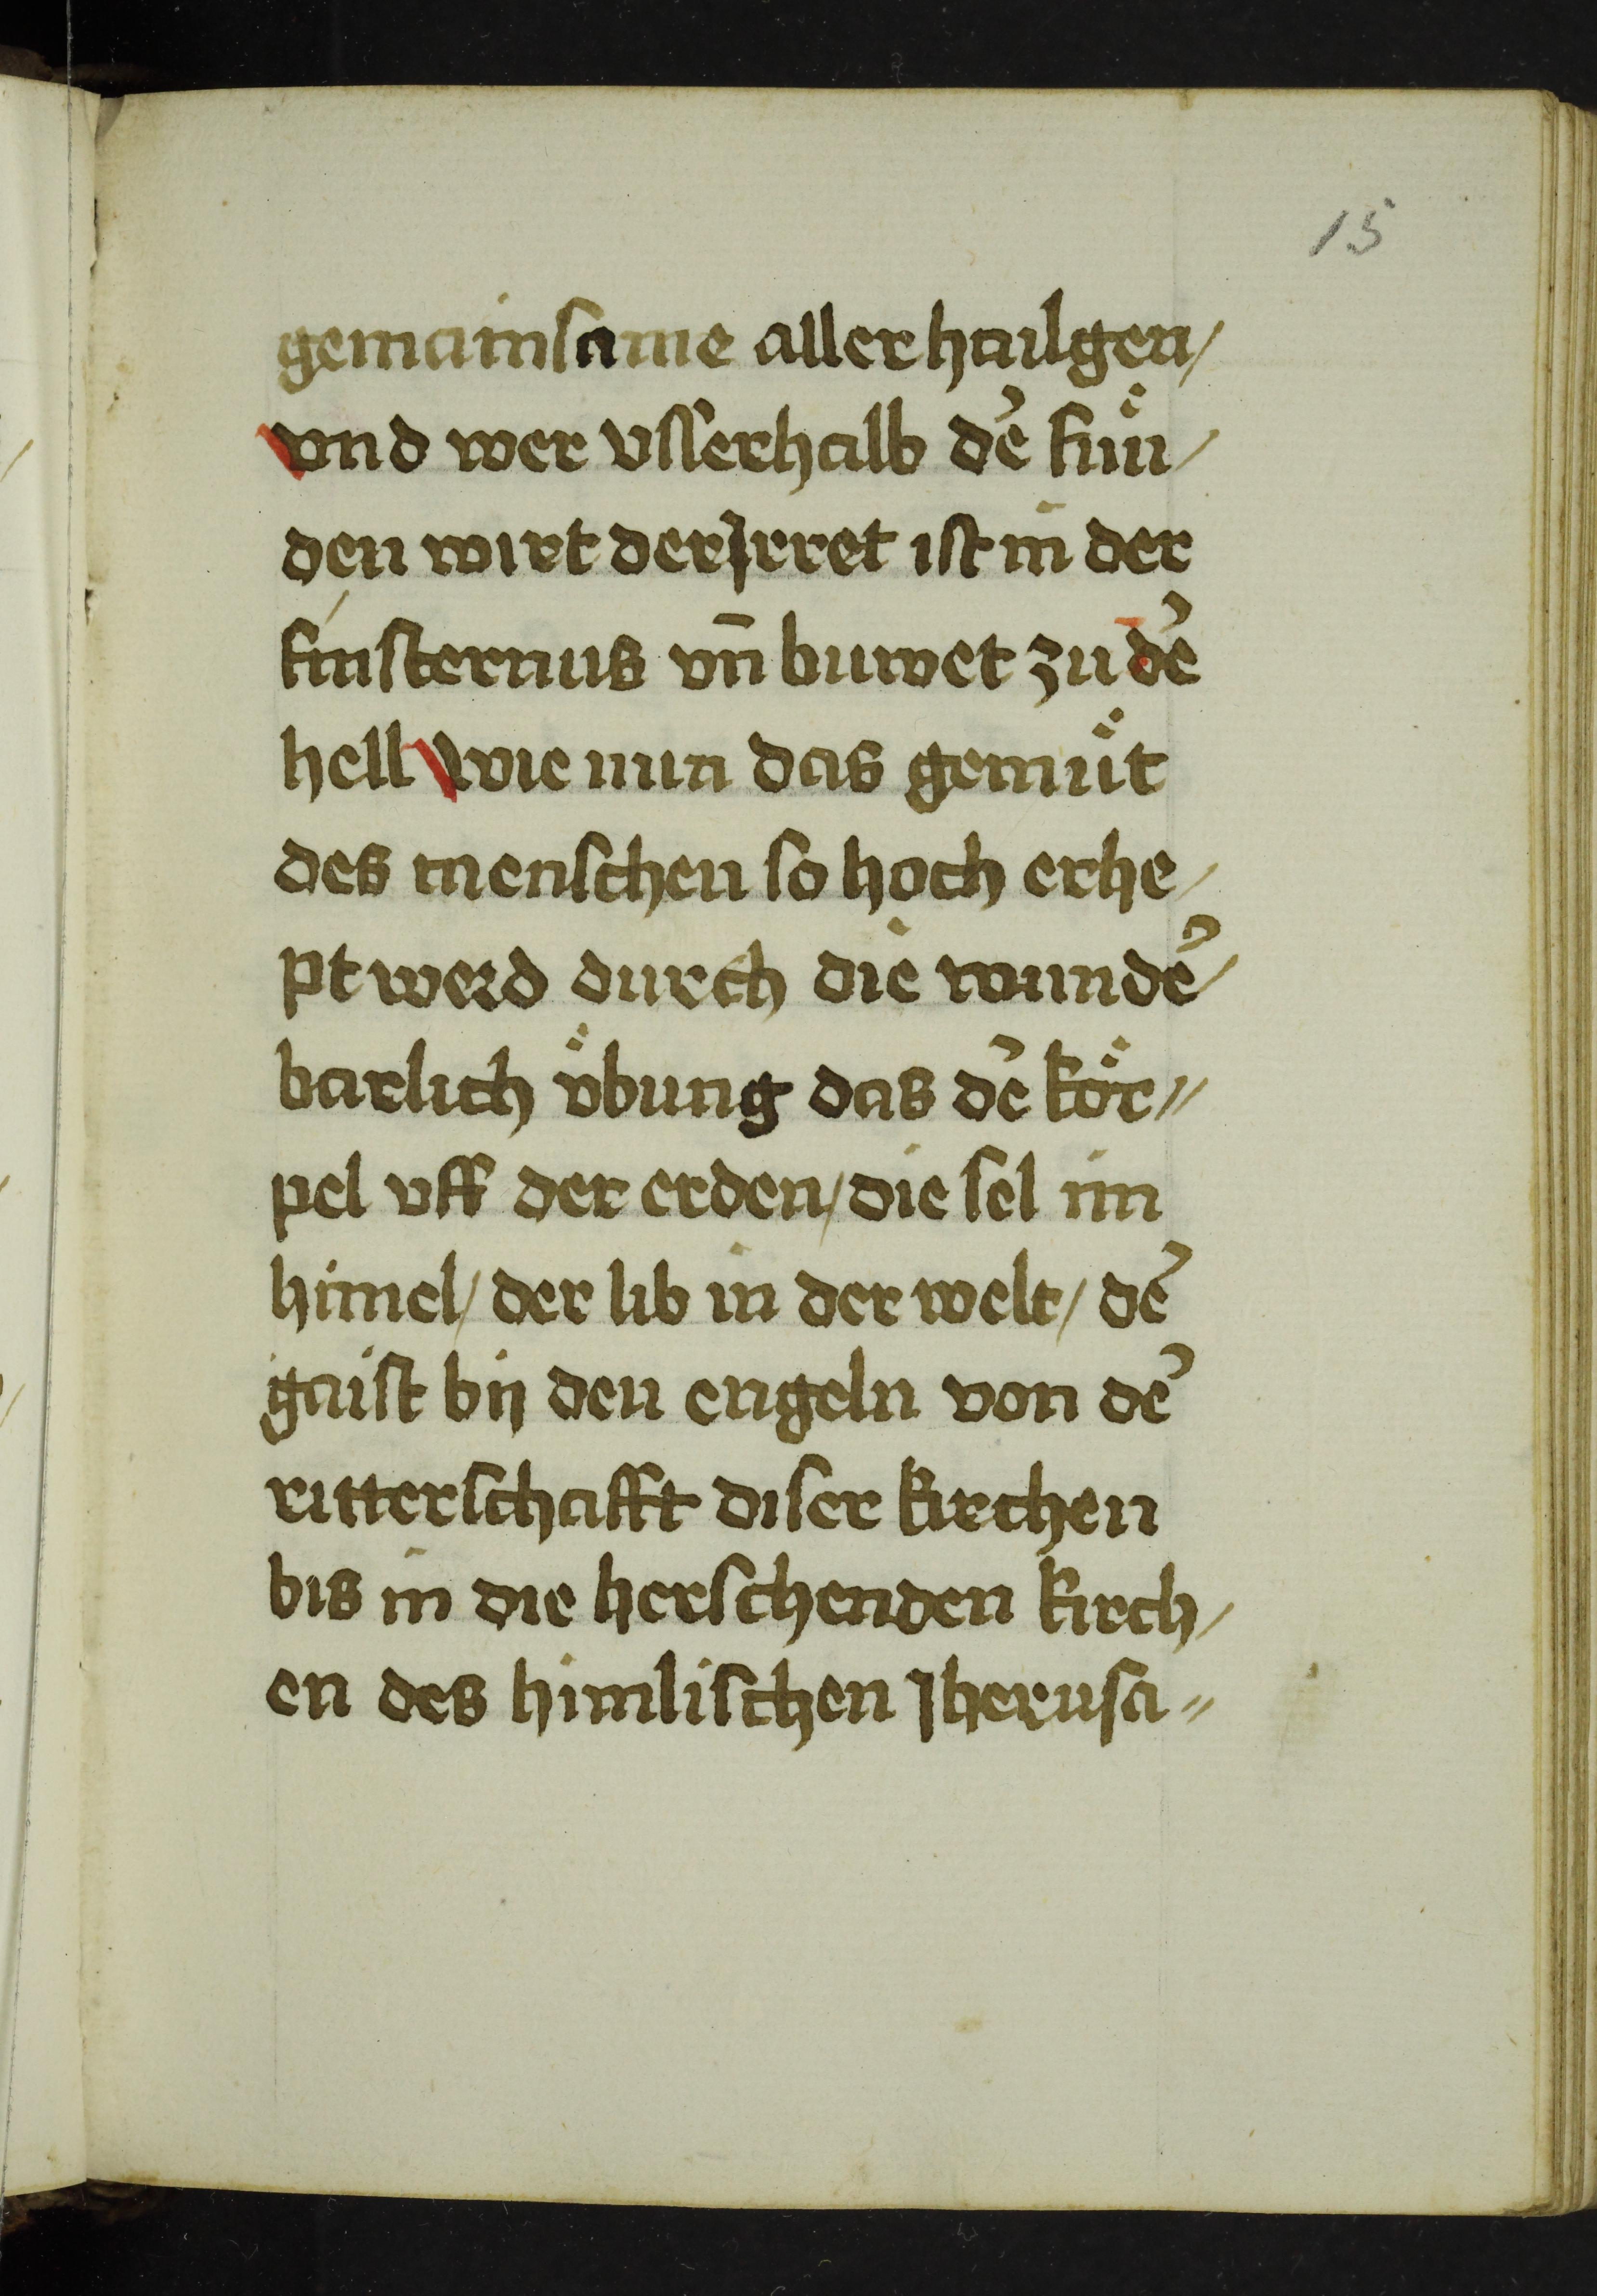 15
gemainsame aller hailgen/
vnd wer vsserhalb de᷑ funͤ/
den wirt der Jrret ist in der
finsternus vn̄ buwet zu de᷑
hell wie nun das gemuͤt
des menschen so hoch erhe/
pt werd durch die wunde᷑/
barlich vͤbung das de᷑ koͤr//
pel vff der erden/ die sel im
himel/ der lib in der welt/ de᷑
gaist bij den engeln von de᷑
ritterschafft diser kirchen
bis in die herschenden kirch/
en des himlischen Jherusa//